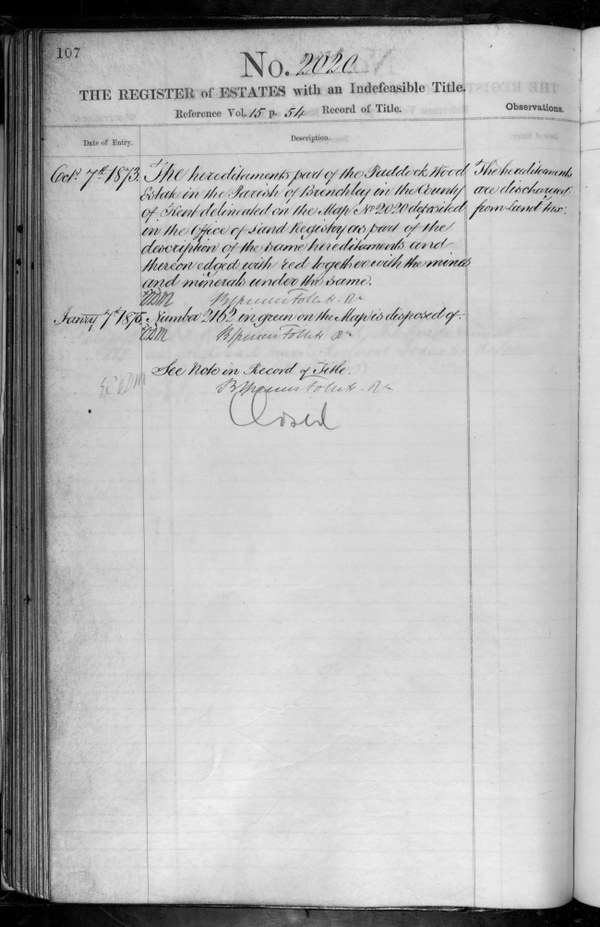 107
No. 2020
THE REGISTER of ESTATES with an Indefeasible Title.
Reference Vol. 15 p. 54 Record of Title.
Observations.
Date of Entry.
Description.
Octr. 7th 1873. The hereditaments part of the Paddock Wood
Estate in the Parish of Brenchley in the County
of Kent delineated on the Map No 2020 deposited
in the Office of Land Registry as part of the
description of the same hereditaments and
thereon edged with red together with the mines
and minerals under the same.
The hereditaments
are discharged
from Land Tax.
B Spencer Follett
Janry 7th 1875. Number 2162 in green on the Map is disposed of.
B Spencer Follett
See Note in Record of Title.
B Spencer Follett
Closed